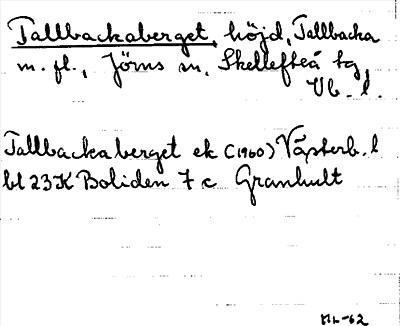 Tallbackaberget, höjd, Tallbacka
m. fl., Jörns sn, Skellefteå tg
Vb. l.
Tallbackaberget ek (1960) Västerb. l
bl 23K Boliden 7c Granhult